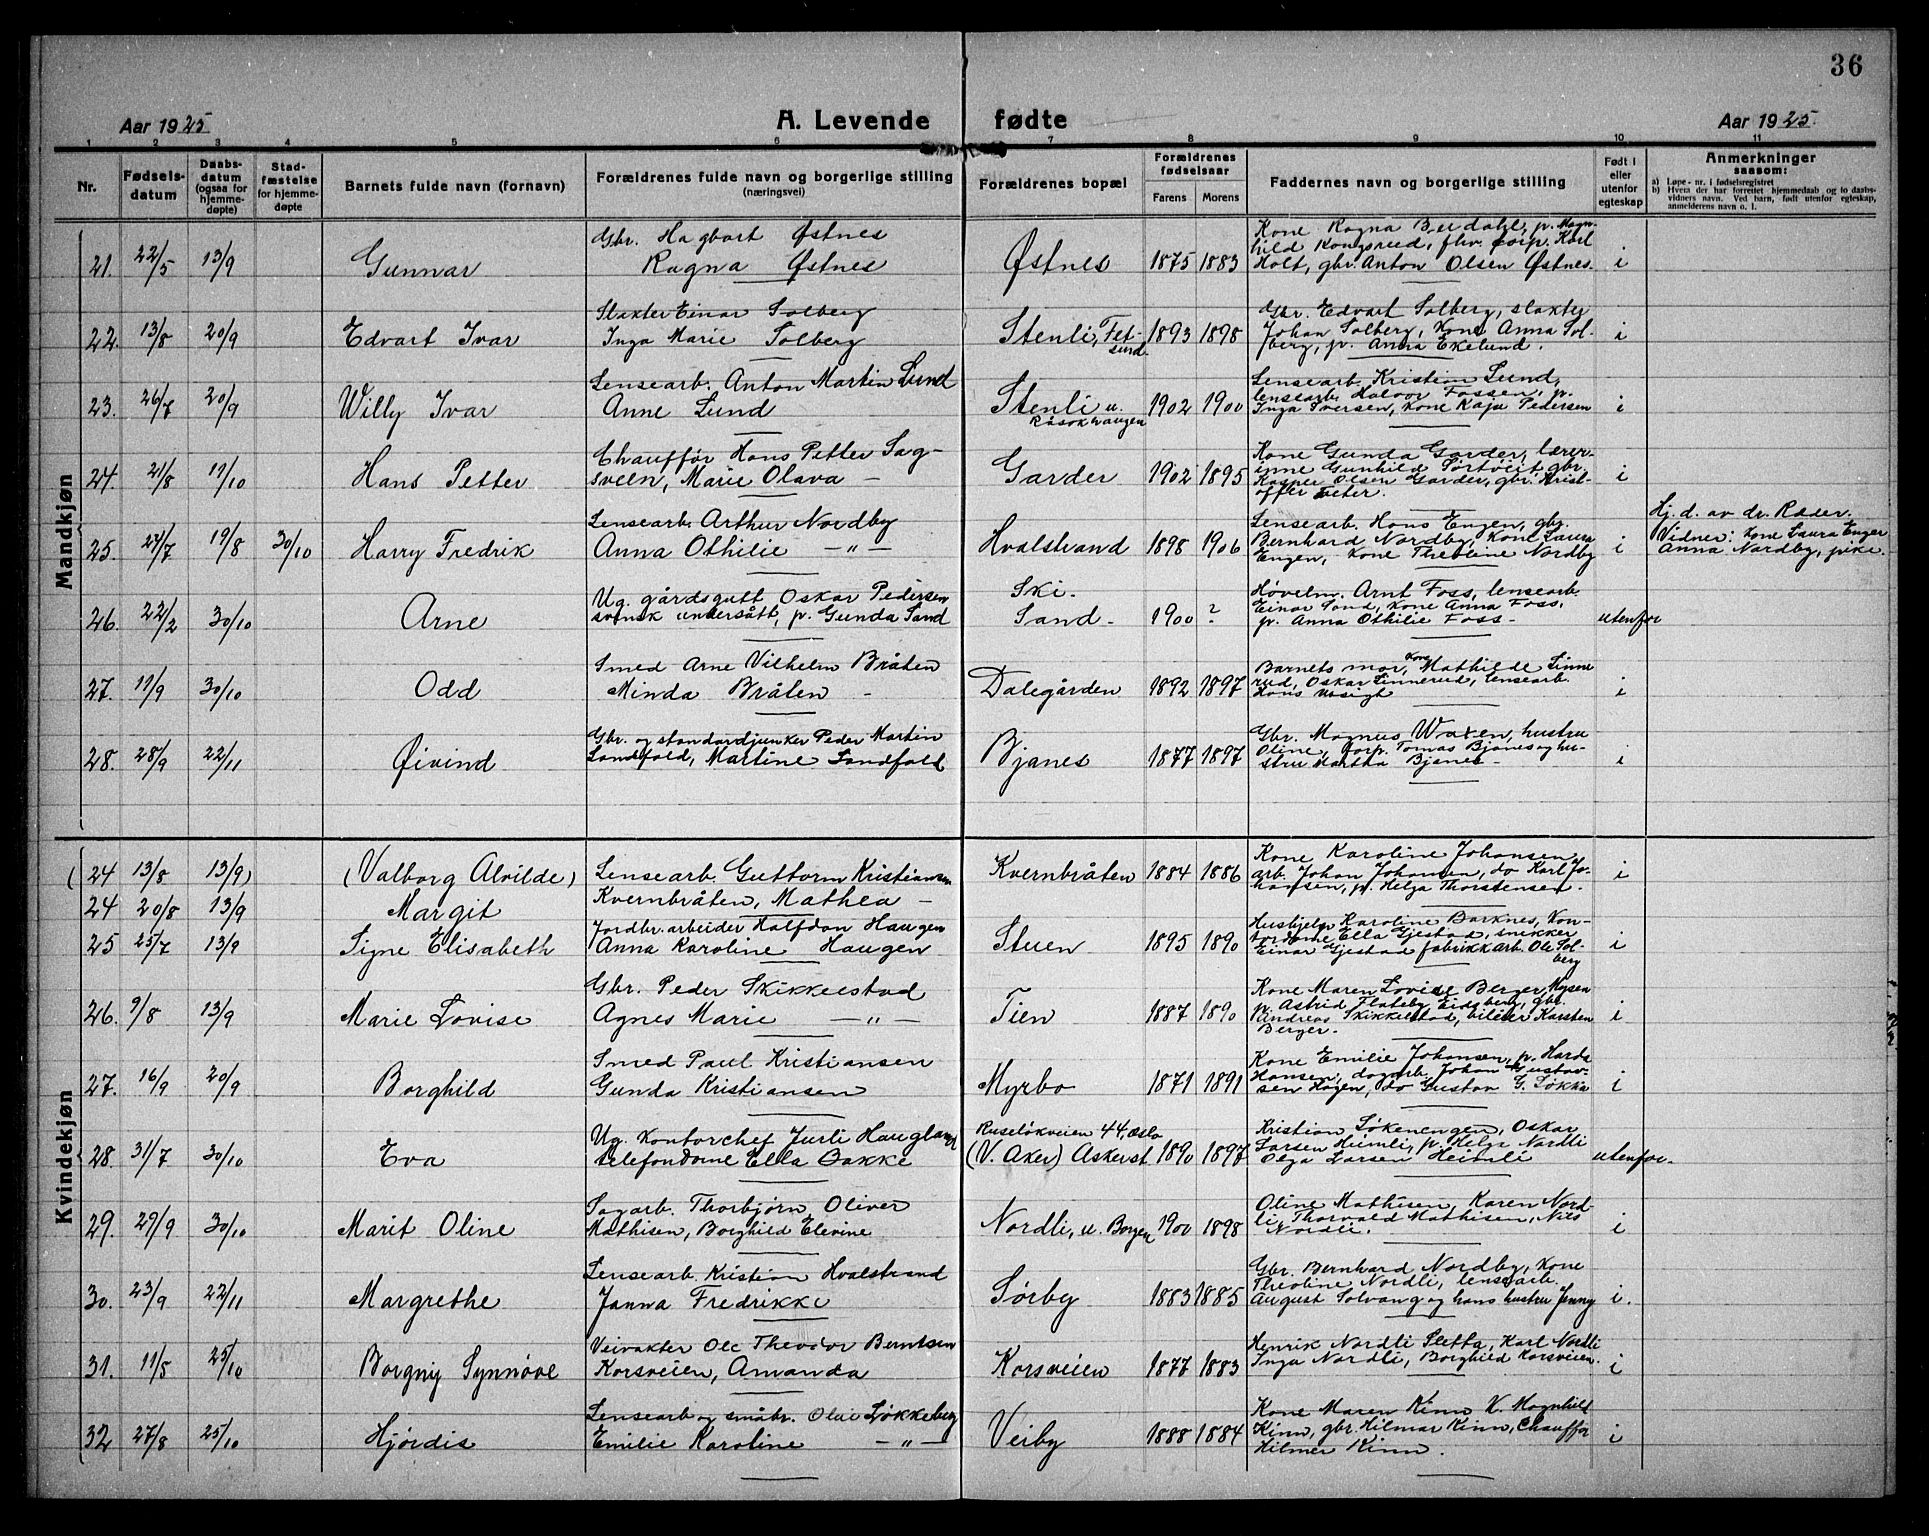 36
Aar 1925 A. Levende fødte Aar 1925.
1 2 3 4 5 6 7 8 9 10 11
Nr.
Fødselsdatum
Daabsdatum (ogsaa for hjemmedøpte)
Stadfæstelse for hjemmedøpte
Barnets fulde navn (fornavn)
Forældrenes fulde navn og borgerlige stilling
(næringsvei)
Forældrenes bopæl
Forældrenes fødselsaar
Farens Morens
Faddernes navn og borgerlige stilling
Født i eller utenfor egteskap
Anmerkninger saasom:
a) Løpe-nr. i fødselsregistret
b) Hvem der har forrettet hjemmedaab og to daabsvidners navn. Ved barn, født utenfor egteskap, anmelderens navn o. l.
Mandkjøn
21. 22/5 13/9 Gunnar
Gbr. Hagbart Østnes
Ragna Østnes
Østnes 1875 1883
Kone Ragna Berdahl, p. Magn-
hild Kongsrud, fhv. corp. Karl
Holt, gbr. Anton Olsen Østnes.
i
22. 13/8 20/9 Edvart Ivar
Slakter Einar Solberg
Inga Marie Solberg
Stenli, Fet-
sund. 1893 1898
Gbr. Edvart Solberg, slakter
Johan Solberg, Kone Anna Sol-
berg, p. Anna Ekelund.
i
23. 26/7 20/9 Willy Ivar
Lensearb. Anton Martin Lund
Anne Lund
Stenli u.
Råsokhaugen 1902 1900
Lensearb. Kristian Lund,
lensearb. Halvor Fossen, p.
Inga Iversen, Kone Kaja Pedersen
i
24. 21/8 11/10 Hans Petter
Chauffør Hans Petter Sag-
sveen, Marie Olava —
Garder 1902 1895
Kone Gunda Garder, lærer-
inne Gunhild Sortveit, gbr.
Kasper Olsen Garder, gbr. Krist-
offer Feter.
i
25. 24/7 19/8 30/10 Harry Fredrik
Lensearb. Arthur Nordby
Anna Othilie — " —
Hvalstrand 1898 1906
Lensearb. Hans Engen, gbr.
Bernhard Nordby, Kone Laura
Engen, Kone Theoline Nordby
i
Hj. d. av dr. Ræder.
Vidner: Kone Laura Enger
Anna Nordby, pike.
26. 22/2 30/10 Arne
Ug. gårdsgutt Oskar Pedersen
svensk undersått, p. Gunda Sand
Ski.
Sand - 1900 ?
Høvelm. Arnt Foss, lensearb.
Einar Sand, Kone Anna Foss,
p. Anna Othilie Foss -
utenfor
27. 11/9 30/10 Odd
Smed Arne Vilhelm Bråten
Minda Bråten -
Dalegården 1892 1897
Barnets mor, Kone Mathilde Linne
rud, Oskar Linnerud, lensearb.
Hans
i
28. 28/9 22/11 Øivind
Gbr. og standardjunker Peder Martin
Sandfold, Martine Sandfold
Bjanes 1877 1897
Gbr. Magnus Waxen, hustru
Oline, corp. Tomas Bjanes og hu-
stru Martha Bjanes -
i
Kvindekjøn
(24 13/8 13/9) (Valborg Alvilde)
Lensearb. Guttorm Kristiansen
Kvernbråten 1884 1886
Kone Karoline Johansen
arb. Johan Johansen, do Karl Jo-
hansen, p. Helga Thorstensen.
i
24 20/8 13/9 Margit
Kvernbråten, Mathea —
25 25/7 13/9 Signe Elisabeth
Jordbr. arbeider Halfdan Haugen
Anna Karoline Haugen
Stuen 1895 1890
Hushjelp Karoline Barknes, Kon-
tordame Ella Gjestad, snikker
Einar Gjestad fabrikkarb. Ole Sol-
berg
i
26. 9/8 13/9 Marie Lovise
Gbr. Peder Skikkelstad
Agnes Marie — " —
Tien 1887 1890
Kone Maren Lovise Berger Mysen
p. Astrid Flateby Eidsberg, gbr.
Andreas Skikkelstad, bileier Karsten
Berger.
i
27. 16/9 20/9 Borghild
Smed Paul Kristiansen
Gunda Kristiansen
Myrbo 1871 1891
Kone Emilie Johansen, p. Harda
Hansen, dagarb. Johan Gustav-
sen Hagen, do Gustav G. Løkka
i
28. 31/7 30/10 Eva
Ug. Kontorchef Jurli Haugland
telefondame Ella Bakke
Ruseløkveien 44, Oslo
(V. Aker) Askerst. 1890 1897
Kristian Løkenengen, Oskar
Larsen Heimli, p. Helga Nordli
Olga Larsen Heimli
utenfor.
29. 29/9 30/10 Marit Oline
Sagarb. Thorbjørn Oliver
Mathisen, Borghild Elevine
Nordli, u. Borgen 1900 1898
Oline Mathisen, Karen Nord-
li, Thorvald Mathisen, Nils
Nordli.
i
30. 23/9 22/11 Margrethe
Lensearb. Kristian Hvalstrand
Janna Fredrikke
Sørby 1883 1885
Gbr. Bernhard Nordby, Kone
Theoline Nordli, lensearb.
August Solvang og hans hustru Jenny
i.
31. 11/5 25/10 Borgny Synnøve
Veivakter Ole Theodor Berntsen
Korsveien, Amanda
Korsveien 1877 1883
Henrik Nordli Sletta, Karl Nordli
Inga Nordli, Borghild Korsveien.
i
32 27/8 25/10 Hjørdis
Lensearb og småbr. Olai Løkkeberg
Emilie Karoline — " —
Veiby 1888 1884
Kone Maren Kinn K. Magnhild
Kinn, gbr. Hilmar Kinn, Chauffør
Hilmer Kinn.
i